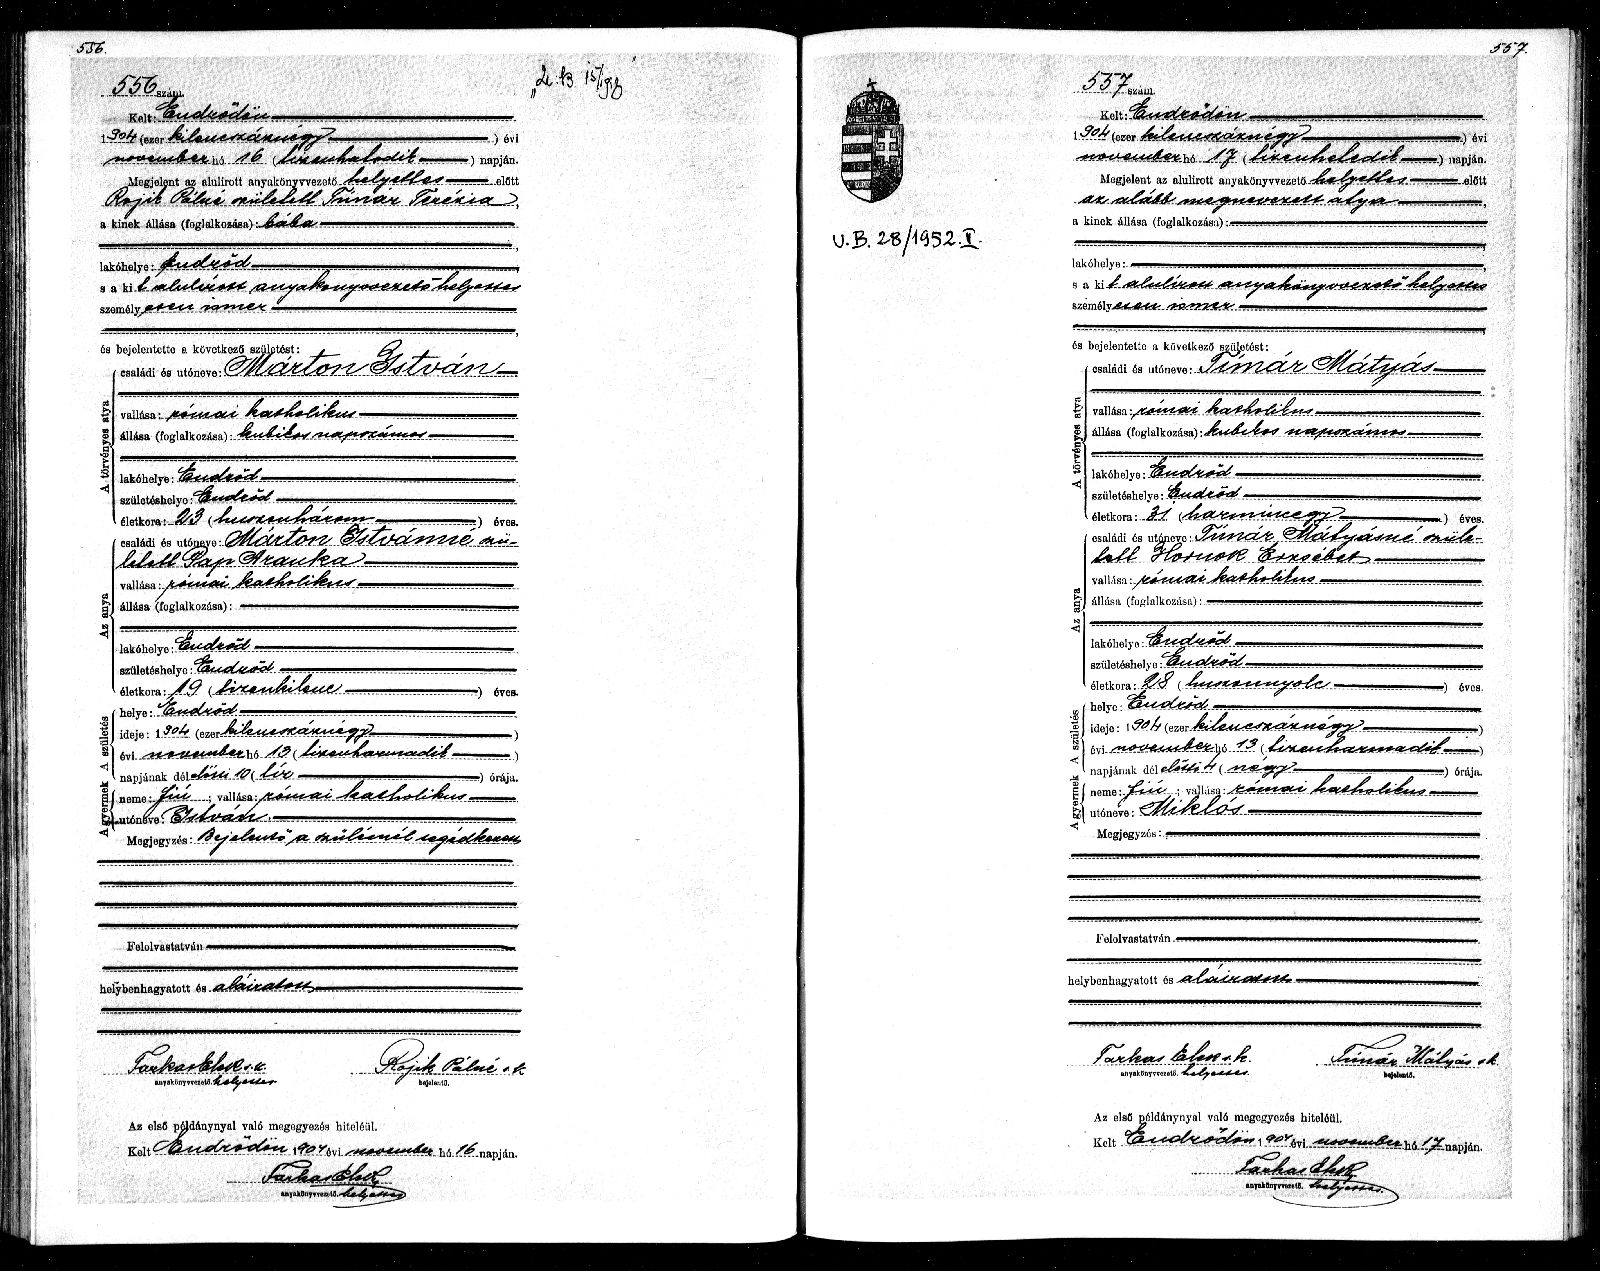 556.
556 szám.
Kelt: Endrődön
1904 (ezer kilencszáznégy) évi
november hó 16 (tizenhatodik) napján.
Megjelent az alulirott anyakönyvvezető helyettes előtt
Rojik Pálné született Tímár Terézia,
a kinek állása (foglalkozása): bába
lakóhelye: Endrőd
s a kit alulírott anyakönyvvezető helyettes
személyesen ismer
és bejelentette a következő születést:
A törvényes atya
családi és utóneve: Márton István
vallása: római katholikus
állása (foglalkozása): kubikos napszámos
lakóhelye: Endrőd
születéshelye: Endrőd
életkora: 23 (huszonhárom) éves.
Az anya
családi és utóneve: Márton Istvánné szü-
letett Pap Aranka
vallása: római katholikus
állása (foglalkozása):
lakóhelye: Endrőd
születéshelye: Endrőd
életkora: 19 (tizenkilenc) éves.
A születés
helye: Endrőd
ideje: 1904 (ezer kilencszáznégy)
évi november hó 13 (tizenharmadik)
napjának dél előtti 10 (tíz) órája.
A gyermek
neme: fiú; vallása: római katholikus
utóneve: István.
Megjegyzés: Bejelentő a szülésnél segédkezett
Felolvastatván
helybenhagyatott és aláiratott
Farkas Elek s.k. Rojik Pálné s.k.
anyakönyvvezető. helyettes bejelentő.
Az első példánynyal való megegyezés hiteléül.
Kelt Endrődön, 1904 évi november hó 16 napján.
Farkas Elek
anyakönyvvezető. helyettes
557.
U.B. 28/1952. II.
557 szám.
Kelt: Endrődön
1904 (ezer kilencszáznégy) évi
november hó 17 (tizenhetedik) napján.
Megjelent az alulirott anyakönyvvezető helyettes előtt
az alább megnevezett atya,
a kinek állása (foglalkozása):
lakóhelye:
s a kit alulírott anyakönyvvezető helyettes
személyesen ismer
és bejelentette a következő születést:
A törvényes atya
családi és utóneve: Tímár Mátyás
vallása: római katholikus
állása (foglalkozása): kubikos napszámos
lakóhelye: Endrőd
születéshelye: Endrőd
életkora: 31 (harmincegy) éves.
Az anya
családi és utóneve: Tímár Mátyásné szüle-
tett Hornok Erzsébet
vallása: római katholikus
állása (foglalkozása):
lakóhelye: Endrőd
születéshelye: Endrőd
életkora: 28 (huszonnyolc) éves.
A születés
helye: Endrőd
ideje: 1904 (ezer kilencszáznégy)
évi november hó 13 (tizenharmadik)
napjának dél előtti 4 (négy) órája.
A gyermek
neme: fiú; vallása: római katholikus
utóneve: Miklós
Megjegyzés:
Felolvastatván
helybenhagyatott és aláiratott
Farkas Elek s.k. Tímár Mátyás s.k.
anyakönyvvezető. helyettes. bejelentő.
Az első példánynyal való megegyezés hiteléül.
Kelt Endrődön 1904 évi november hó 17 napján.
Farkas Elek
anyakönyvvezető. helyettes.